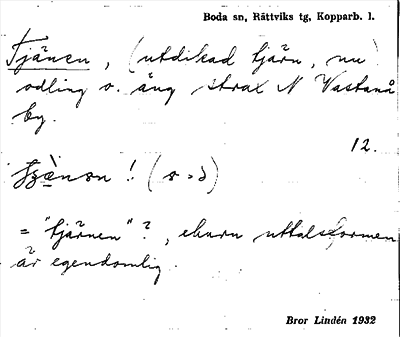 Boda sn, Rättviks tg, Kopparb. l.
Tjänen, (utdikad tjärn, nu)
odling o. äng strax N Vastanå
by.
12.
! (s = ð)
= "tjärnen"?, ehuru uttalsformen
är egendomlig.
Bror Lindén 1932